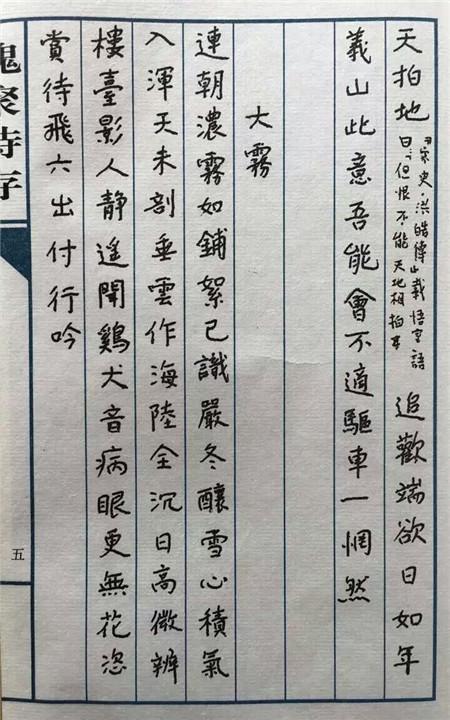 天拍地 宋史·洪皓傳載悟室語曰：但恨不能天地相拍耳 追歡端欲日如年
義山此意吾能會不適驅車一惘然
大霧
連朝濃霧如鋪絮已識嚴冬釀雪心積氣
入渾天未剖垂雲作海陸全沉日高微辨
樓臺影人靜遙聞鷄犬音病眼更無花恣
賞待飛六出付行吟
槐聚詩存
五